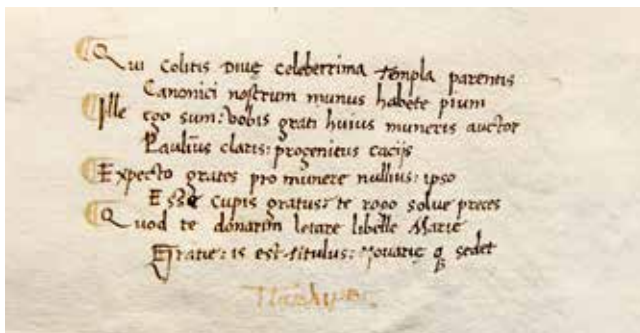 Qui colitis diuę celeberrima templa parentis
Canonici nostrum munus habete pium
Ille ego sum: uobis grati huius muneris auctor
Paulus claris: progenitus cacijs
Expecto grates pro munere nullius: ipso
Esse cupis gratus: te rogo solue preces
Quod te donarim letare libelle Marię
Gratie: is est titulus: Nouarię q sedet